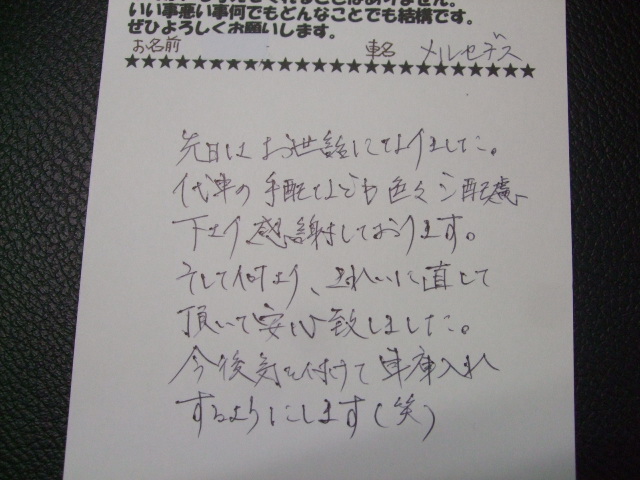 いい事悪い事何でもどんなことでも結構です。
ぜひよろしくお願いします。
お名前 車名 メルセデス
★★★★★★★★★★★★★★★★★★★★★★★★★★★★★★
先日はお世話になりました。
代車の手配なども色々ご配慮
下さり感謝しております。
そして何より、きれいに直して
頂いて安心致しました。
今後気を付けて車庫入れ
するようにします(笑)